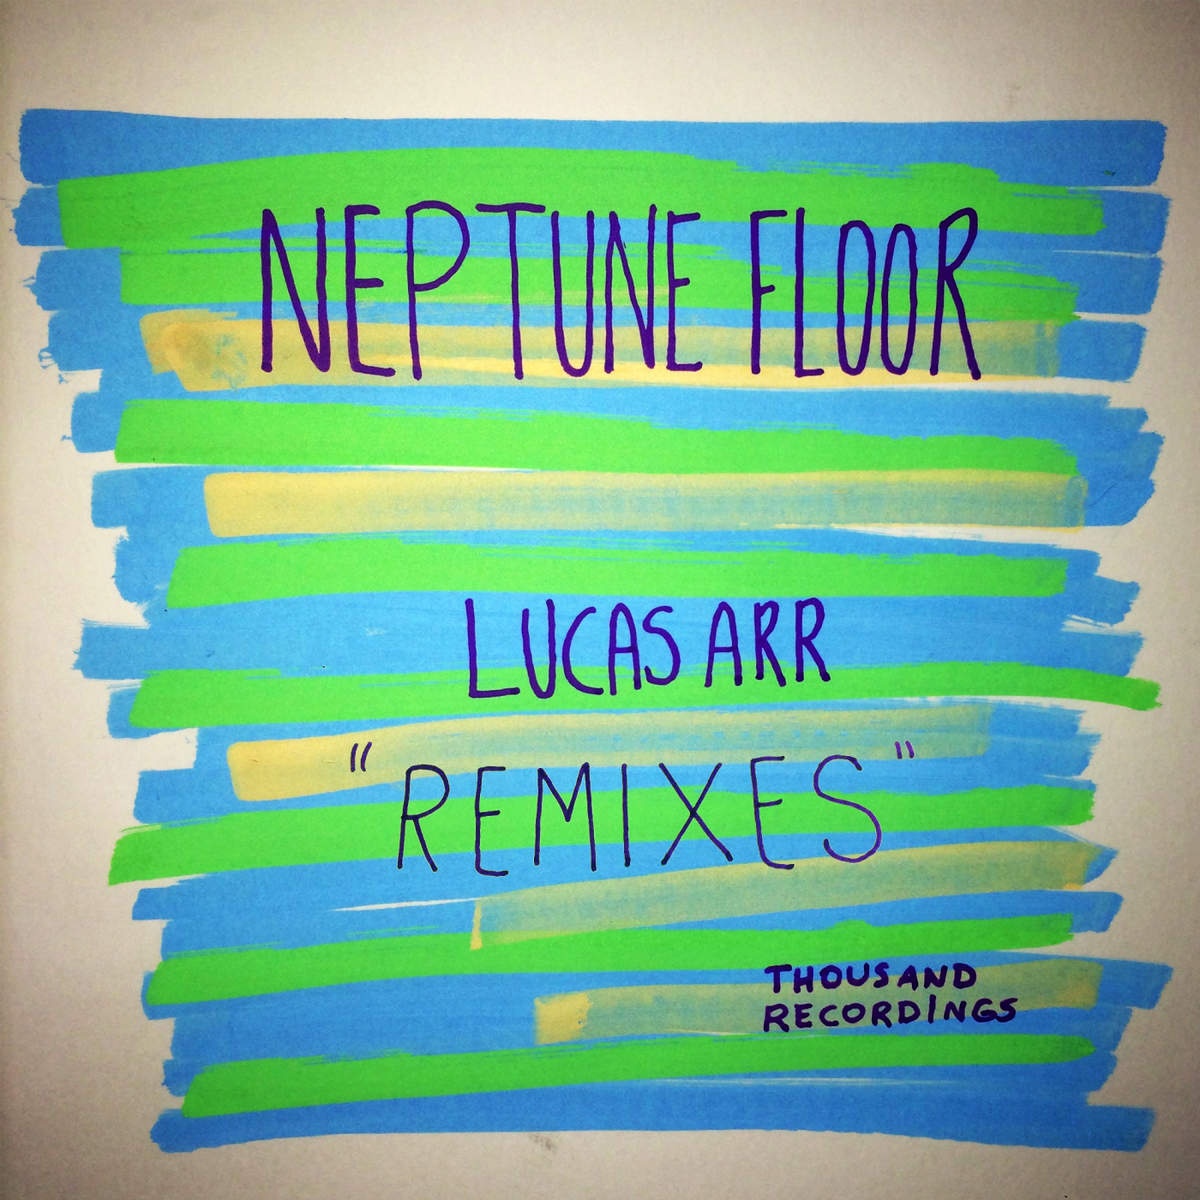 NEPTUNE FLOOR
LUCAS ARR
"REMIXES"
THOUSAND
RECORDINGS